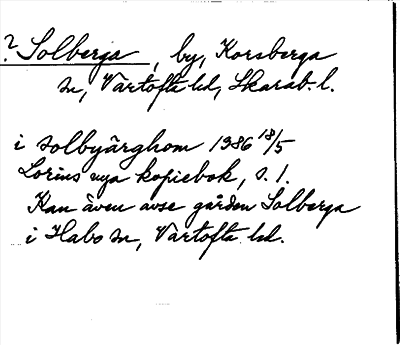 ? Solberga, by, Korsberga
sn, Vartofta hd, Skarab. l.
i solbyärghom 1986 18/5
Lorins nya kopiebok, s. 1.
Kan även avse gården Solberga
i Habo sn, Vartofta hd.